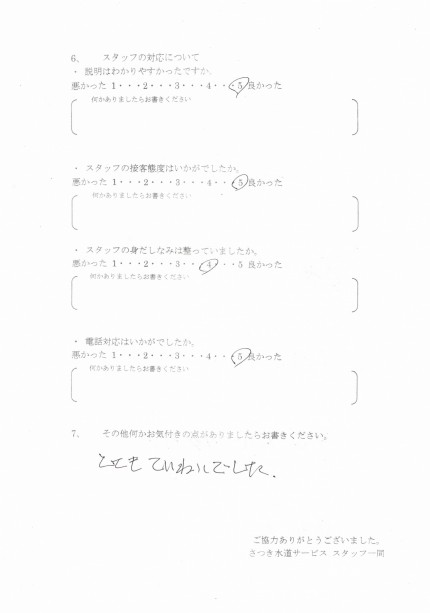 6、 スタッフの対応について
・ 説明はわかりやすかったですか。
悪かった 1・・・2・・・3・・・4・・・5 良かった
何かありましたらお書きください
・ スタッフの接客態度はいかがでしたか。
悪かった 1・・・2・・・3・・・4・・・5 良かった
何かありましたらお書きください
・ スタッフの身だしなみは整っていましたか。
悪かった 1・・・2・・・3・・・4・・・5 良かった
何かありましたらお書きください
・ 電話対応はいかがでしたか。
悪かった 1・・・2・・・3・・・4・・・5 良かった
何かありましたらお書きください
7、 その他何かお気付きの点がありましたらお書きください。
とてもていねいでした.
ご協力ありがとうございました。
さつき水道サービス スタッフ一同